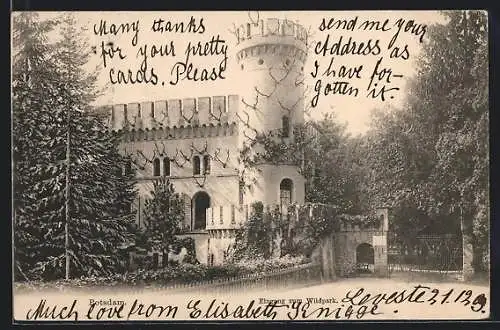 Many thanks
for your pretty
cards. Please
send me your
Address as
I have for-
gotten it.
Potsdam. Eingang zum Wildpark.
Much love from Elisabeth Knigge. 21.12.